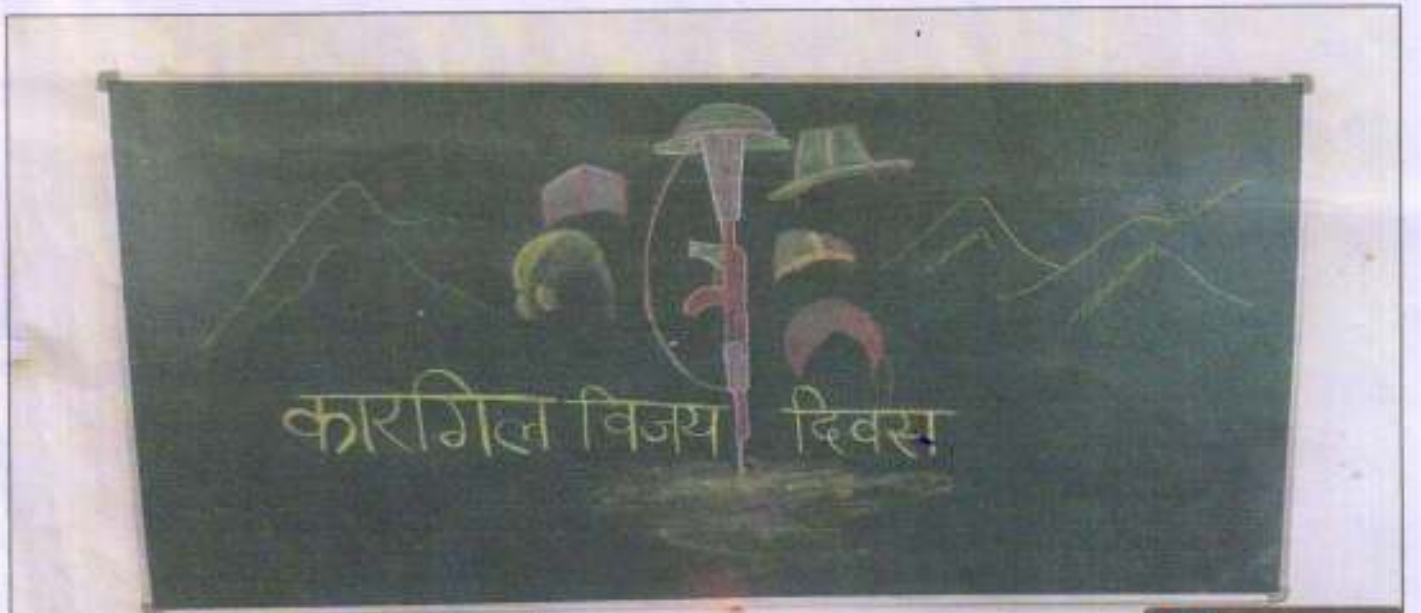 कारगिल विजय दिवस